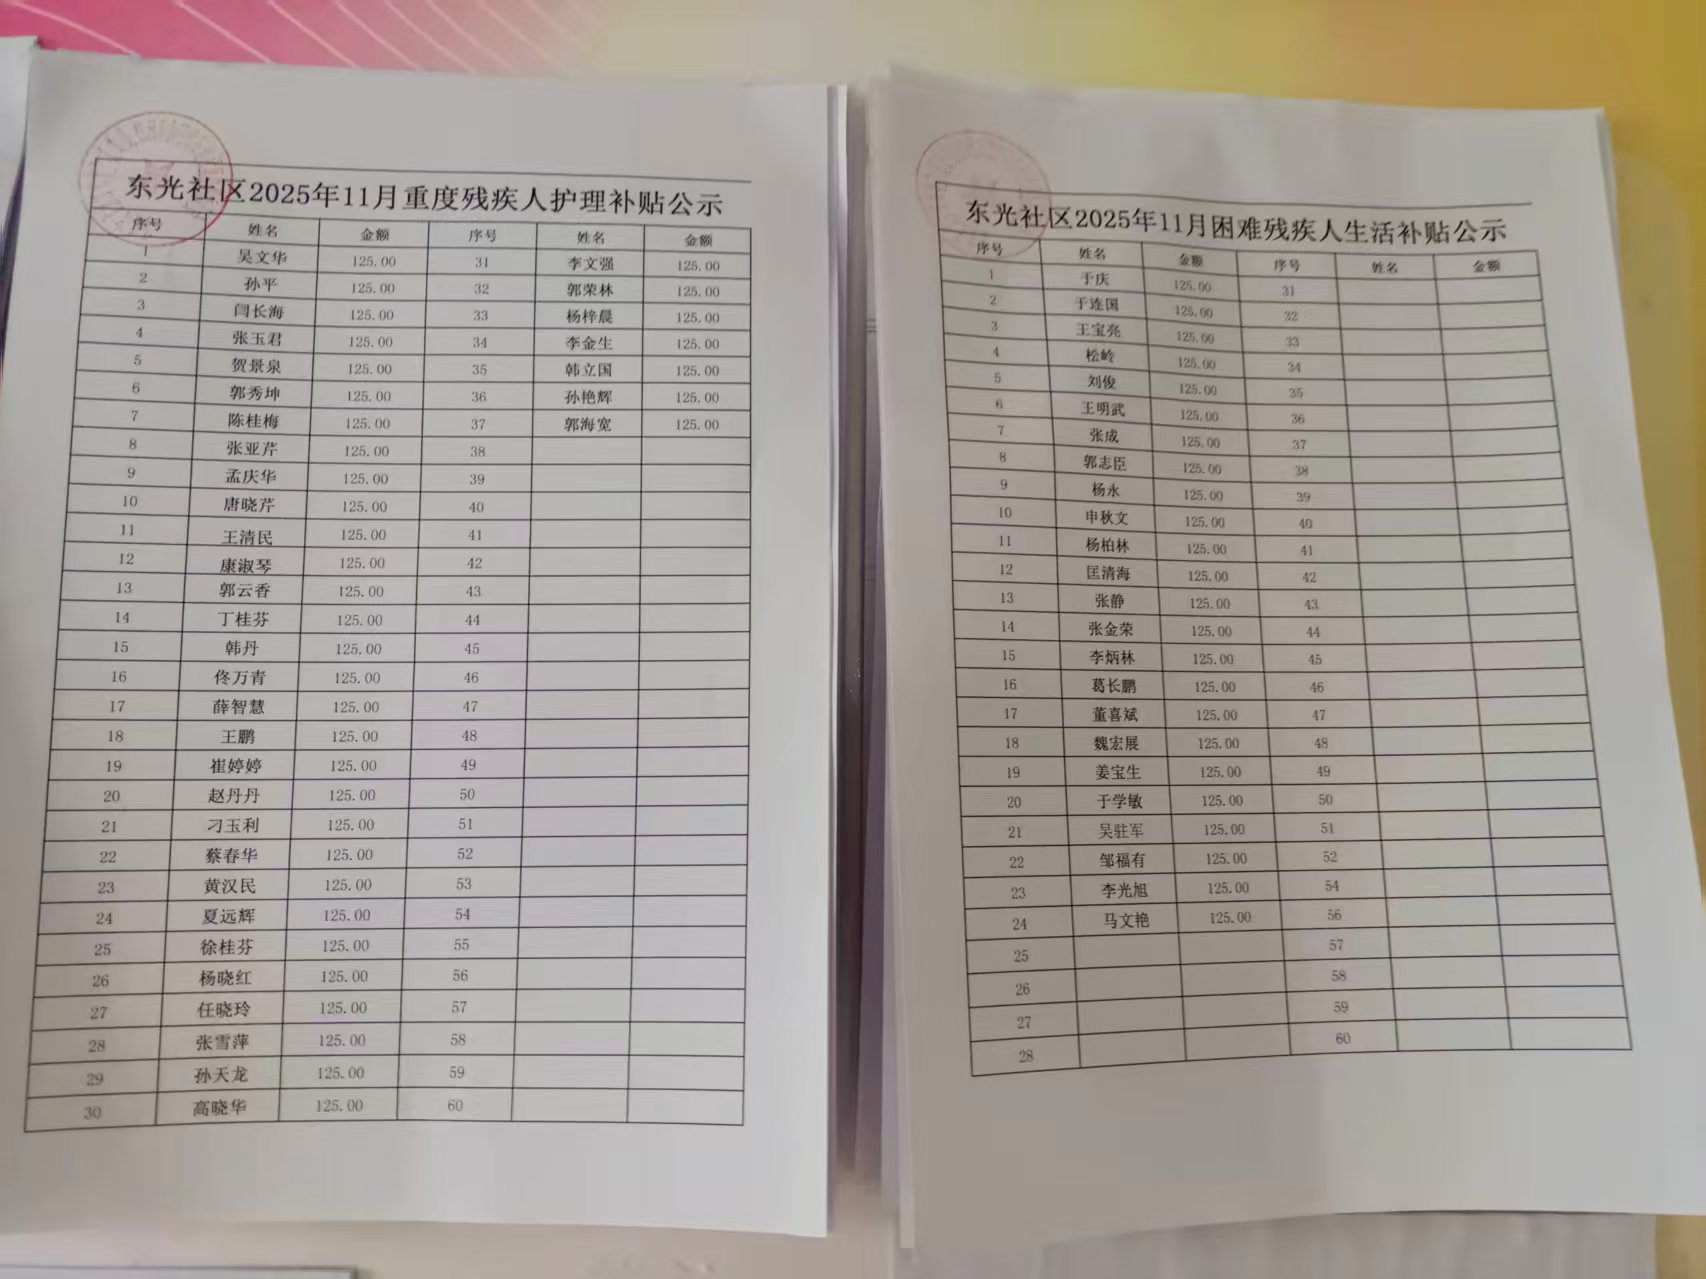 东光社区2025年11月重度残疾人护理补贴公示
序号 姓名 金额 序号 姓名 金额
1 吴文华 125.00 31 李文强 125.00
2 孙平 125.00 32 郭荣林 125.00
3 闫长海 125.00 33 杨梓晨 125.00
4 张玉君 125.00 34 李金生 125.00
5 贺景泉 125.00 35 韩立国 125.00
6 郭秀坤 125.00 36 孙艳辉 125.00
7 陈桂梅 125.00 37 郭海宽 125.00
8 张亚芹 125.00 38
9 孟庆华 125.00 39
10 唐晓芹 125.00 40
11 王清民 125.00 41
12 康淑琴 125.00 42
13 郭云香 125.00 43
14 丁桂芬 125.00 44
15 韩丹 125.00 45
16 佟万青 125.00 46
17 薛智慧 125.00 47
18 王鹏 125.00 48
19 崔婷婷 125.00 49
20 赵丹丹 125.00 50
21 刁玉利 125.00 51
22 蔡春华 125.00 52
23 黄汉民 125.00 53
24 夏远辉 125.00 54
25 徐桂芬 125.00 55
26 杨晓红 125.00 56
27 任晓玲 125.00 57
28 张雪萍 125.00 58
29 孙天龙 125.00 59
30 高晓华 125.00 60
东光社区2025年11月困难残疾人生活补贴公示
序号 姓名 金额 序号 姓名 金额
1 于庆 125.00 31
2 于连国 125.00 32
3 王宝亮 125.00 33
4 松岭 125.00 34
5 刘俊 125.00 35
6 王明武 125.00 36
7 张成 125.00 37
8 郭志臣 125.00 38
9 杨永 125.00 39
10 申秋文 125.00 40
11 杨柏林 125.00 41
12 匡清海 125.00 42
13 张静 125.00 43
14 张金荣 125.00 44
15 李炳林 125.00 45
16 葛长鹏 125.00 46
17 董喜斌 125.00 47
18 魏宏展 125.00 48
19 姜宝生 125.00 49
20 于学敏 125.00 50
21 吴驻军 125.00 51
22 邹福有 125.00 52
23 李光旭 125.00 54
24 马文艳 125.00 56
25 57
26 58
27 59
28 60